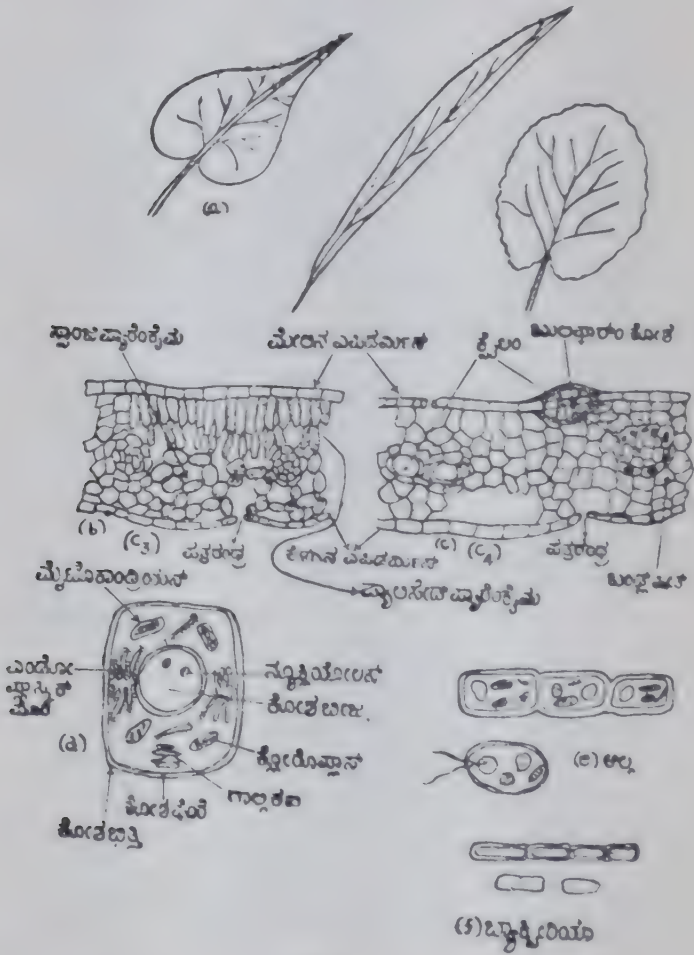 (a)
ಸ್ಪಾಂಜಿಪ್ಯಾರೆಂಕೈಮ
ಮೇಲಿನ ಎಪಿಡರ್ಮಿಸ್
ಕ್ಸೈಲಂ
ಬುಲಿಫಾರಂ ಕೋಶ
(b)
(C₃)
ಪತ್ರರಂಧ್ರ
ಕೆಳಗಿನ ಎಪಿಡರ್ಮಿಸ್
(c)
(C₄)
ಪತ್ರರಂಧ್ರ
ಪ್ಯಾಲಸೇಡ್ ಪ್ಯಾರೆಂಕೈಮ
ಮೈಟೊಕಾಂಡ್ರಿಯನ್
ಎಂಡೋ
ಪ್ಲಾಸ್ಮಿಕ್
(d)
ನ್ಯೂಕ್ಲಿಯೋಲಸ್
ಕೋಶಬೀಜ
ಕ್ಲೋರೊಪ್ಲಾಸ್
ಗಾಲ್ಗಿಕಾಯ
ಕೋಶಪೊರೆ
ಕೋಶಭಿತ್ತಿ
(e) ಆಲ್ಗ
(f) ಬ್ಯಾಕ್ಟೀರಿಯಾ